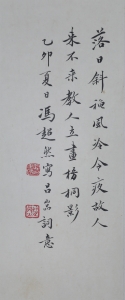 落日斜秋風冷今夜故人
来不来教人立盡梧桐影
乙卯夏日馮超然寫呂岩詞意